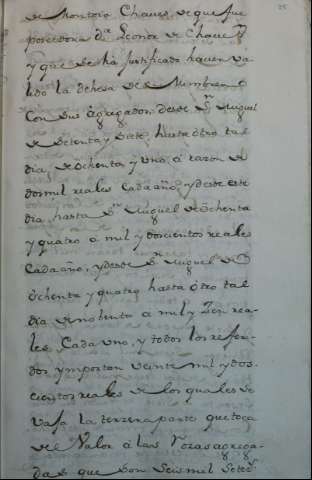 de Montoio Chaves, de que fue
poseedora d.ª Leonor de Chaves
y que se ha justificado haver va
lido la dehesa de
con sus agregados desde S.n Miguel
de setenta y siete, hasta otro tal
dia, de ochenta y uno, á razon de
dos mil reales cada año, y desde este
dia hasta S.n Miguel de ochenta
y quatro a mil y doscientos reales
cada año, y desde S.n Miguel de
ochenta y quatro hasta otro tal
dia de nobenta a mil y Zien rea-
les cada uno, y todos los referi-
dos ymportan veinte mil y dos-
cientos reales de los quales se
vaja la terzera parte que toca
de el valor á las Yerbas agrega-
das que son seis mil setes.